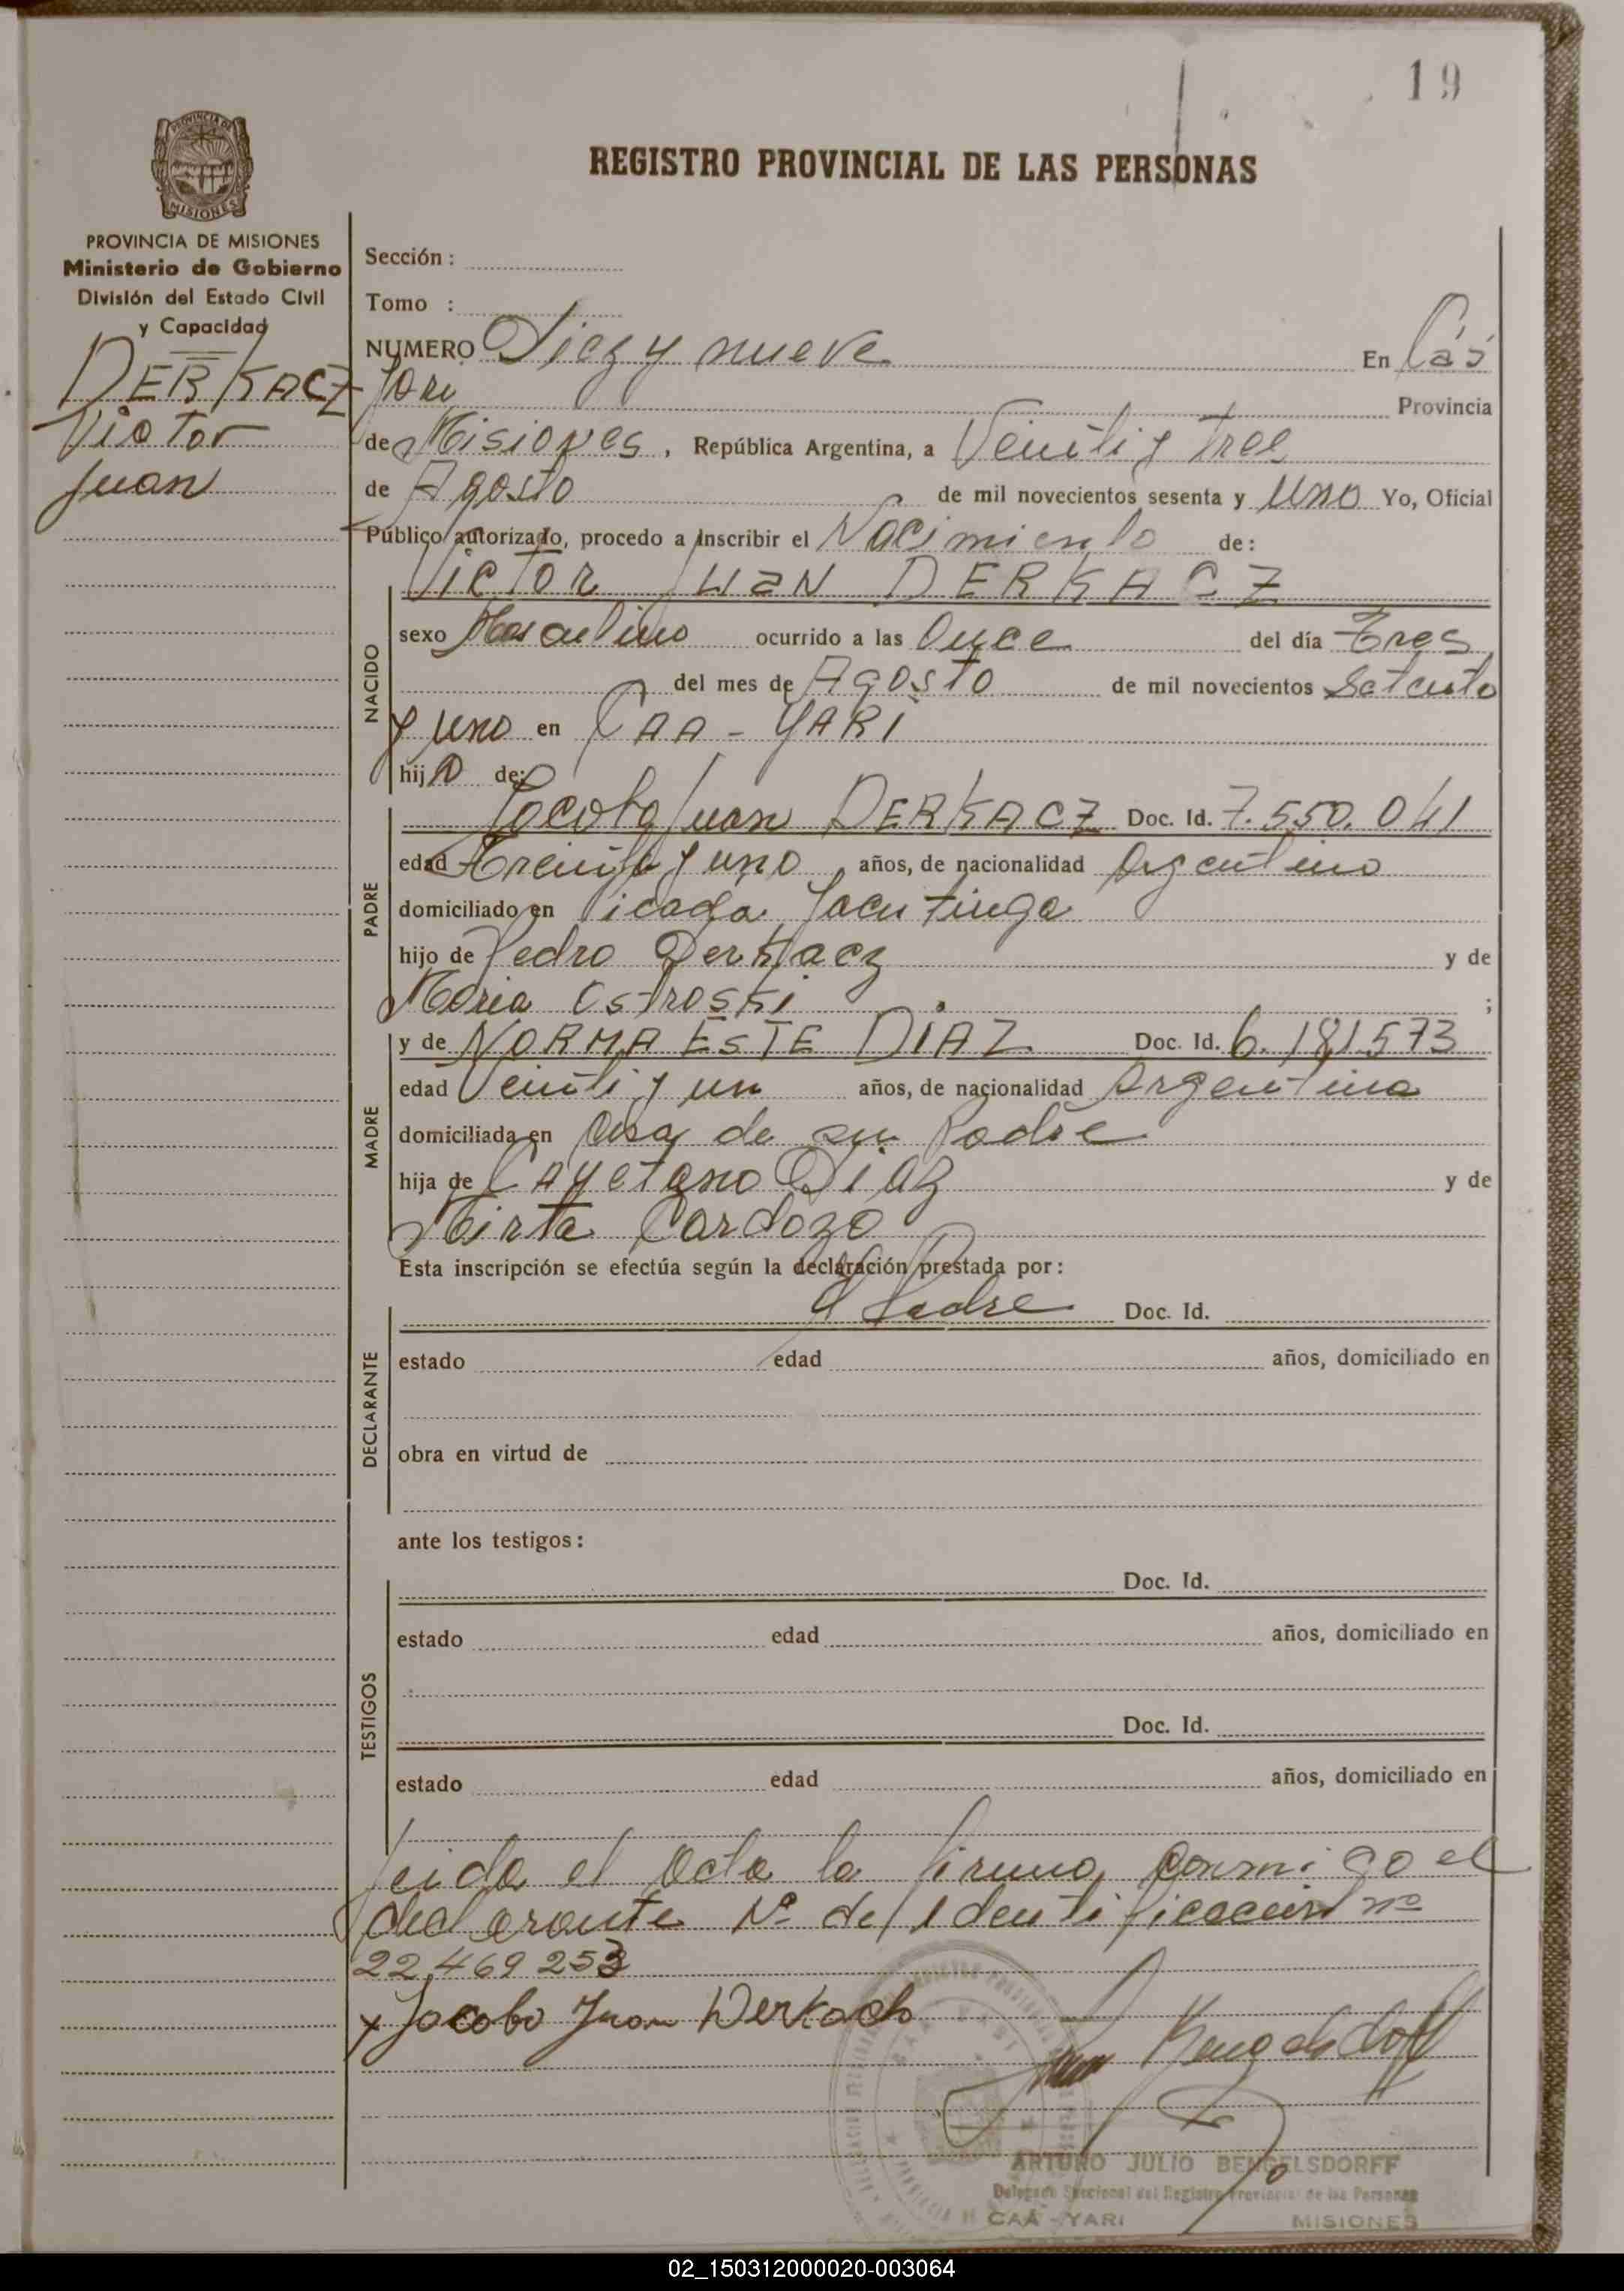 19
REGISTRO PROVINCIAL DE LAS PERSONAS
PROVINCIA DE
MISIONES
PROVINCIA DE MISIONES
Ministerio de Gobierno
División del Estado Civil
y Capacidad
DERKACZ
Victor
Juan
Sección :
Tomo :
NUMERO Diez y nueve En Cáá
Yari Provincia
de Misiones, República Argentina, a Veinti y tres
de Agosto de mil novecientos sesenta y uno Yo, Oficial
Público autorizado, procedo a inscribir el Nacimiento de:
Victor Juan DERKACZ
NACIDO
sexo Masculino ocurrido a las Once del día Tres
del mes de Agosto de mil novecientos Setenta
y uno en CAA - YARI
hijo de:
Jacobo Juan DERKACZ Doc. Id. 7.550.041
PADRE
edad Treinta y uno años, de nacionalidad Argentino
domiciliado en Picada Jacutinga
hijo de Pedro Derkacz y de
Maria Ostroski ;
y de NORMA ESTE DIAZ Doc. Id. 6.181.573
MADRE
edad Veinti y un años, de nacionalidad Argentina
domiciliada en Casa de su Padre
hija de Cayetano Diaz y de
Mirta Cardozo
Esta inscripción se efectúa según la declaración prestada por:
el Padre Doc. Id.
DECLARANTE
estado edad años, domiciliado en
obra en virtud de
ante los testigos:
Doc. Id.
TESTIGOS
estado edad años, domiciliado en
Doc. Id.
estado edad años, domiciliado en
Leida el Acta la firma conmigo el
declarante Nº de Identificacion nº
22,469 253
x Jacobo Juan Derkach
Bengelsdorff
ARTURO JULIO BENGELSDORFF
Delegado Seccional del Registro Provincial de las Personas
CAÁ - YARI MISIONES
02_150312000020-003064